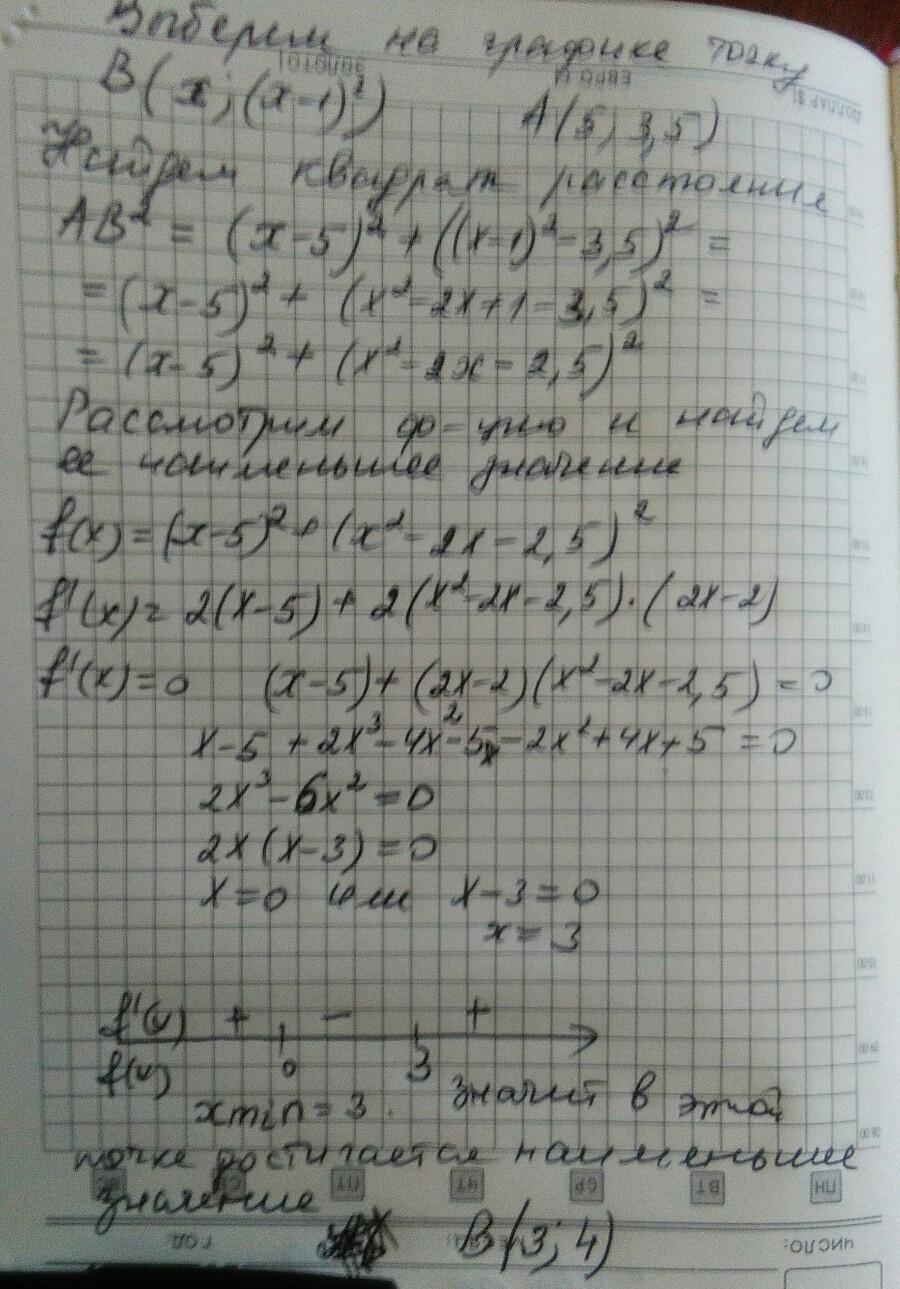 Выберем на графике точку
B(x; (x-1)²) A(5; 3,5)
Найдем квадрат расстояния
AB² = (x-5)² + ((x-1)² - 3,5)² =
= (x-5)² + (x² - 2x + 1 - 3,5)² =
= (x-5)² + (x² - 2x - 2,5)²
Рассмотрим ф-цию и найдем
ее наименьшее значение
f(x) = (x-5)² + (x² - 2x - 2,5)²
f'(x) = 2(x-5) + 2(x² - 2x - 2,5)·(2x-2)
f'(x) = 0 (x-5) + (2x-2)(x² - 2x - 2,5) = 0
x - 5 + 2x³ - 4x² - 5x - 2x² + 4x + 5 = 0
2x³ - 6x² = 0
2x(x-3) = 0
x = 0 или x - 3 = 0
x = 3
f'(x) + - +
f(x) 0 3
xmin = 3. значит в этой
точке достигается наименьшее
значение
B(3; 4)
ПН ВТ СР ЧТ ПТ
ЧИСЛО: ГОД